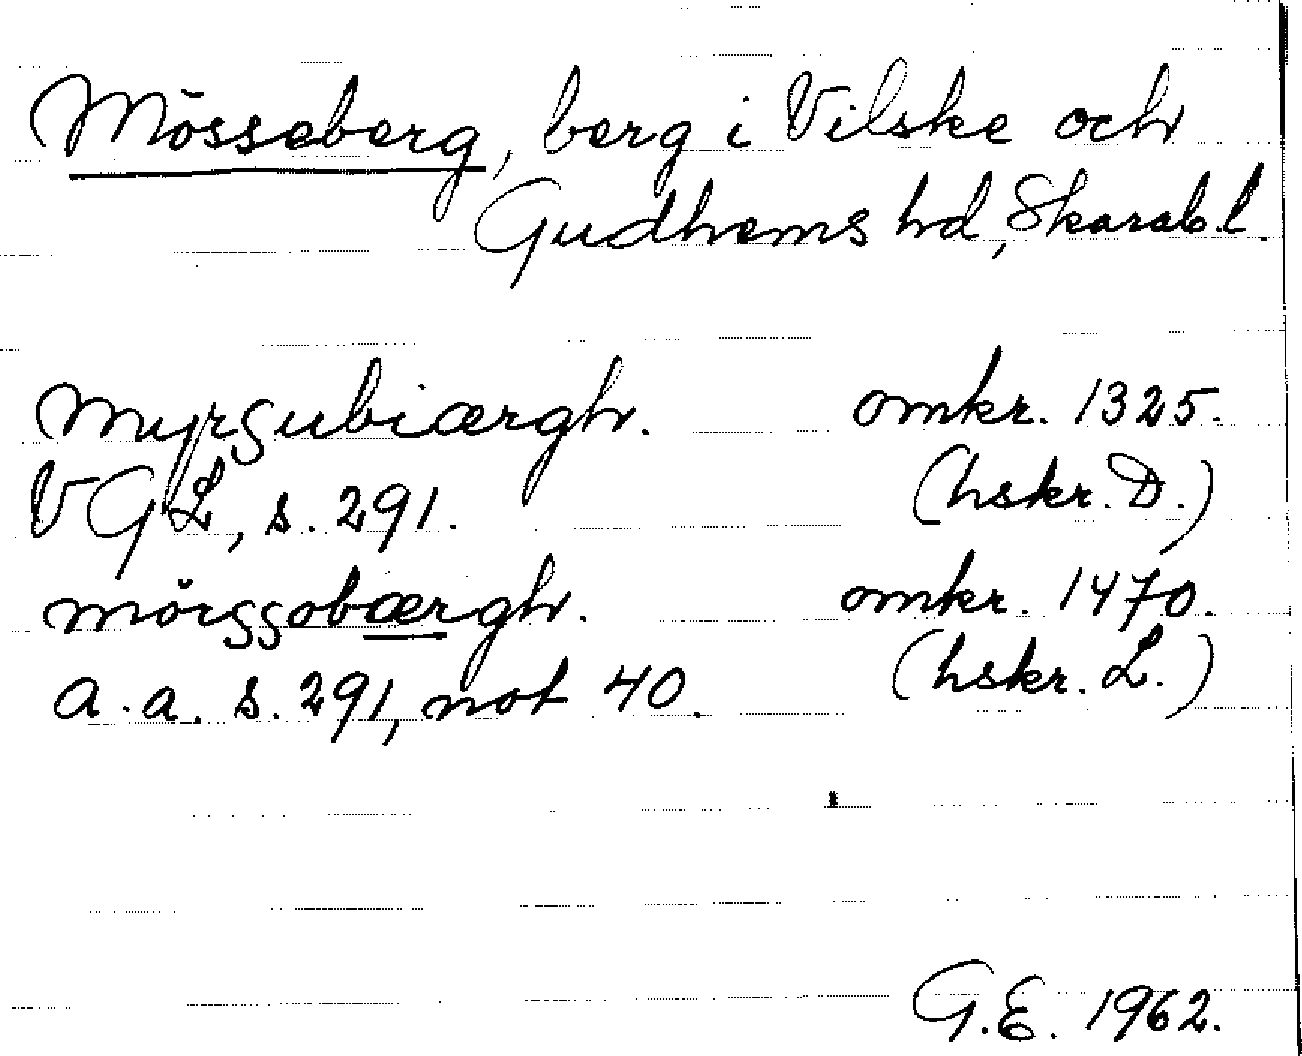 Mösseberg, berg i Vilske och
Gudhems hd, Skarab.l.
myrgubiærgh. omkr. 1325.
VGL, s. 291. (hskr. D.)
mörggobærgh. omkr. 1470.
a.a. s. 291, not 40. (hskr. L.)
G.E. 1962.